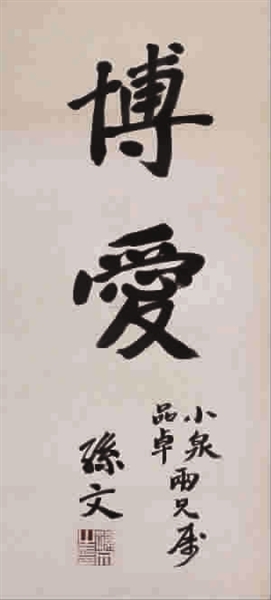 博愛
小泉
品卓
兩兄屬
孫文